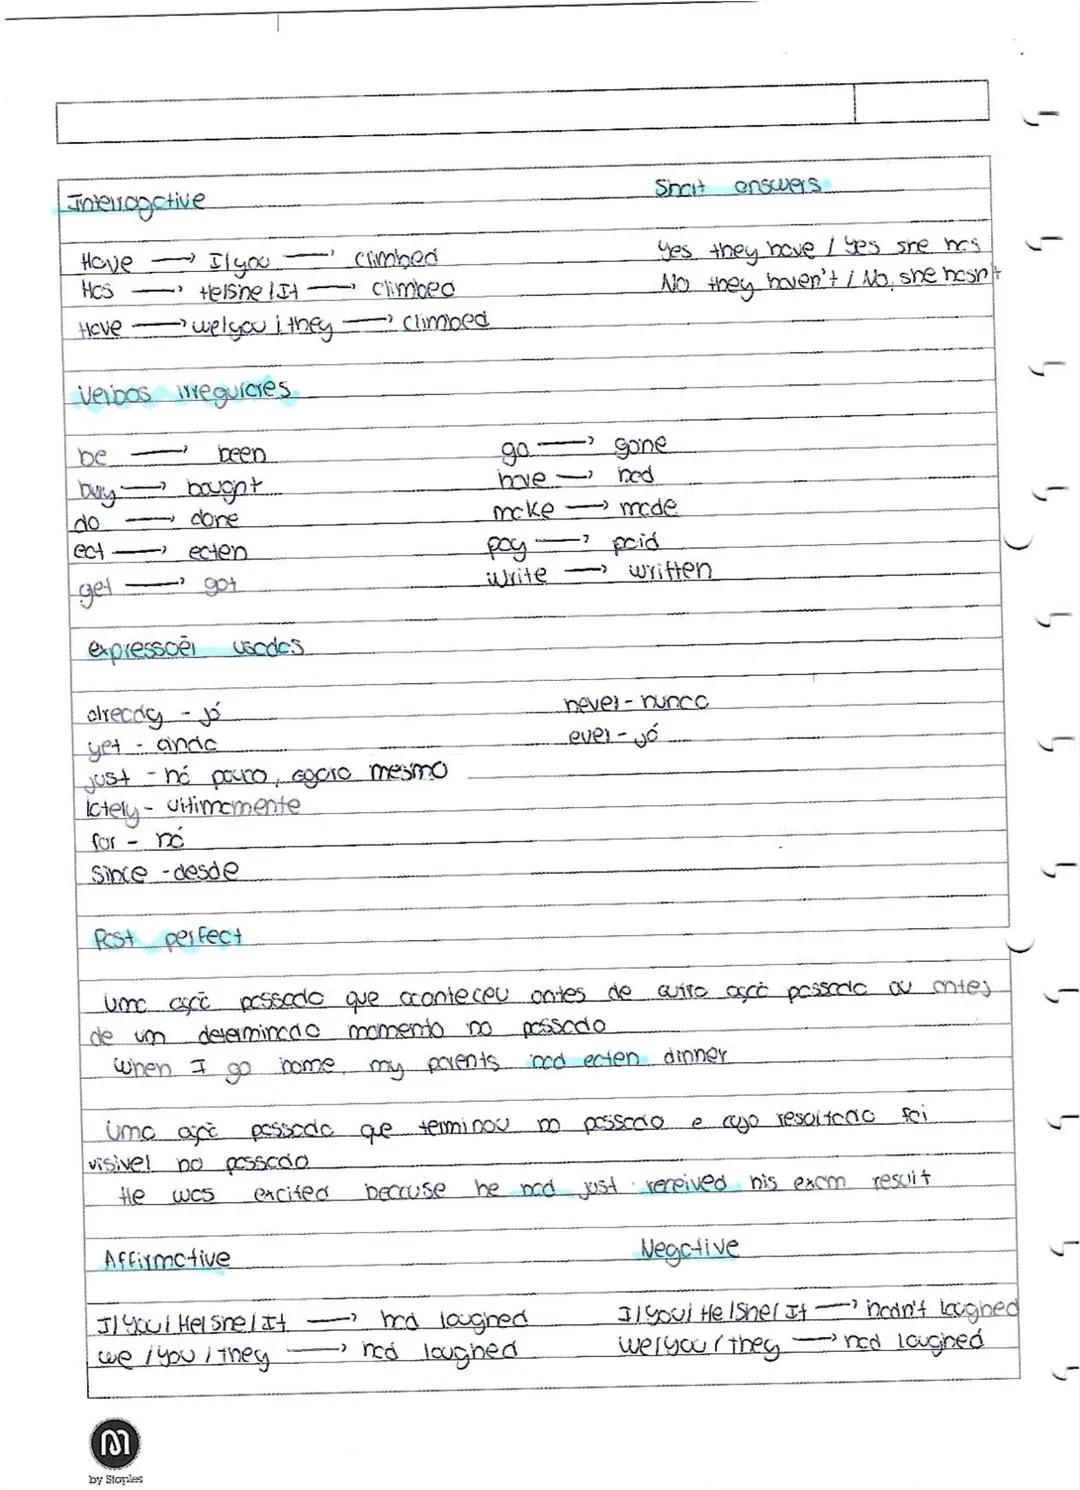 Interrogative
Short answers
Have → I/you → climbed
Yes they have / Yes she has
Has → He/She/It → climbed
No they haven't / No, she hasn't
Have → we/you/they → climbed
Verbos irregulares
be → been
go → gone
buy → bought
have → had
do → done
make → made
eat → eaten
pay → paid
get → got
write → written
expressões usadas
already - já
never - nunca
yet - ainda
ever - já
just - há pouco, agora mesmo
lately - ultimamente
for - há
Since - desde
Past perfect
Uma ação passada que aconteceu antes de outra ação passada ou antes
de um determinado momento no passado
When I go home, my parents had eaten dinner
Uma ação passada que terminou no passado e cujo resultado foi
visivel no passado
He was excited because he had just received his exam result
Affirmative
Negative
I/You/He/She/It → had laughed
I/You/He/She/It → hadn't laughed
we/you/they → had laughed
We/you/they → had laughed
by Staples